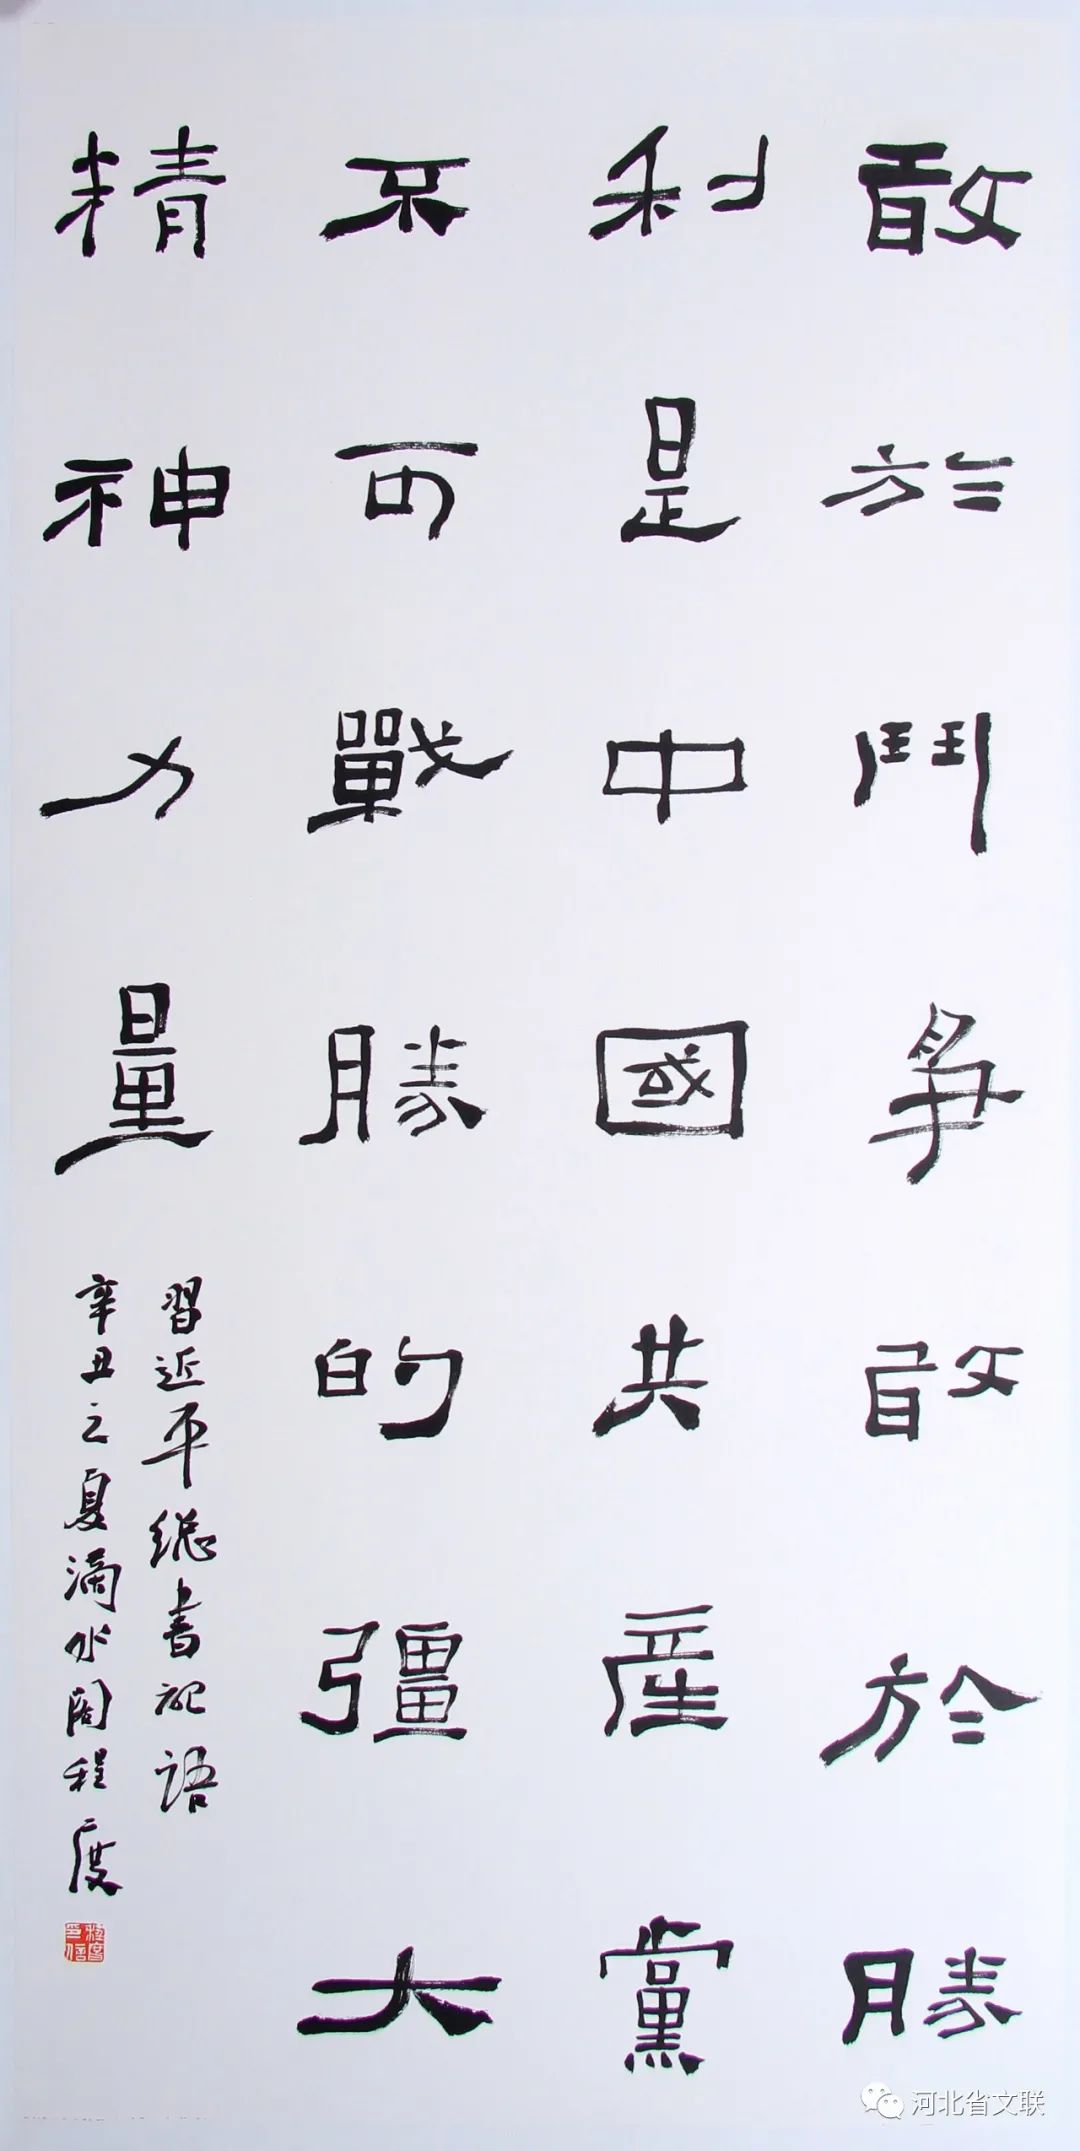 敢於鬥爭敢於勝
利是中國共産黨
不可戰勝的彊大
精神力量
習近平總書記語
辛丑之夏滴水閣程度
河北省文联